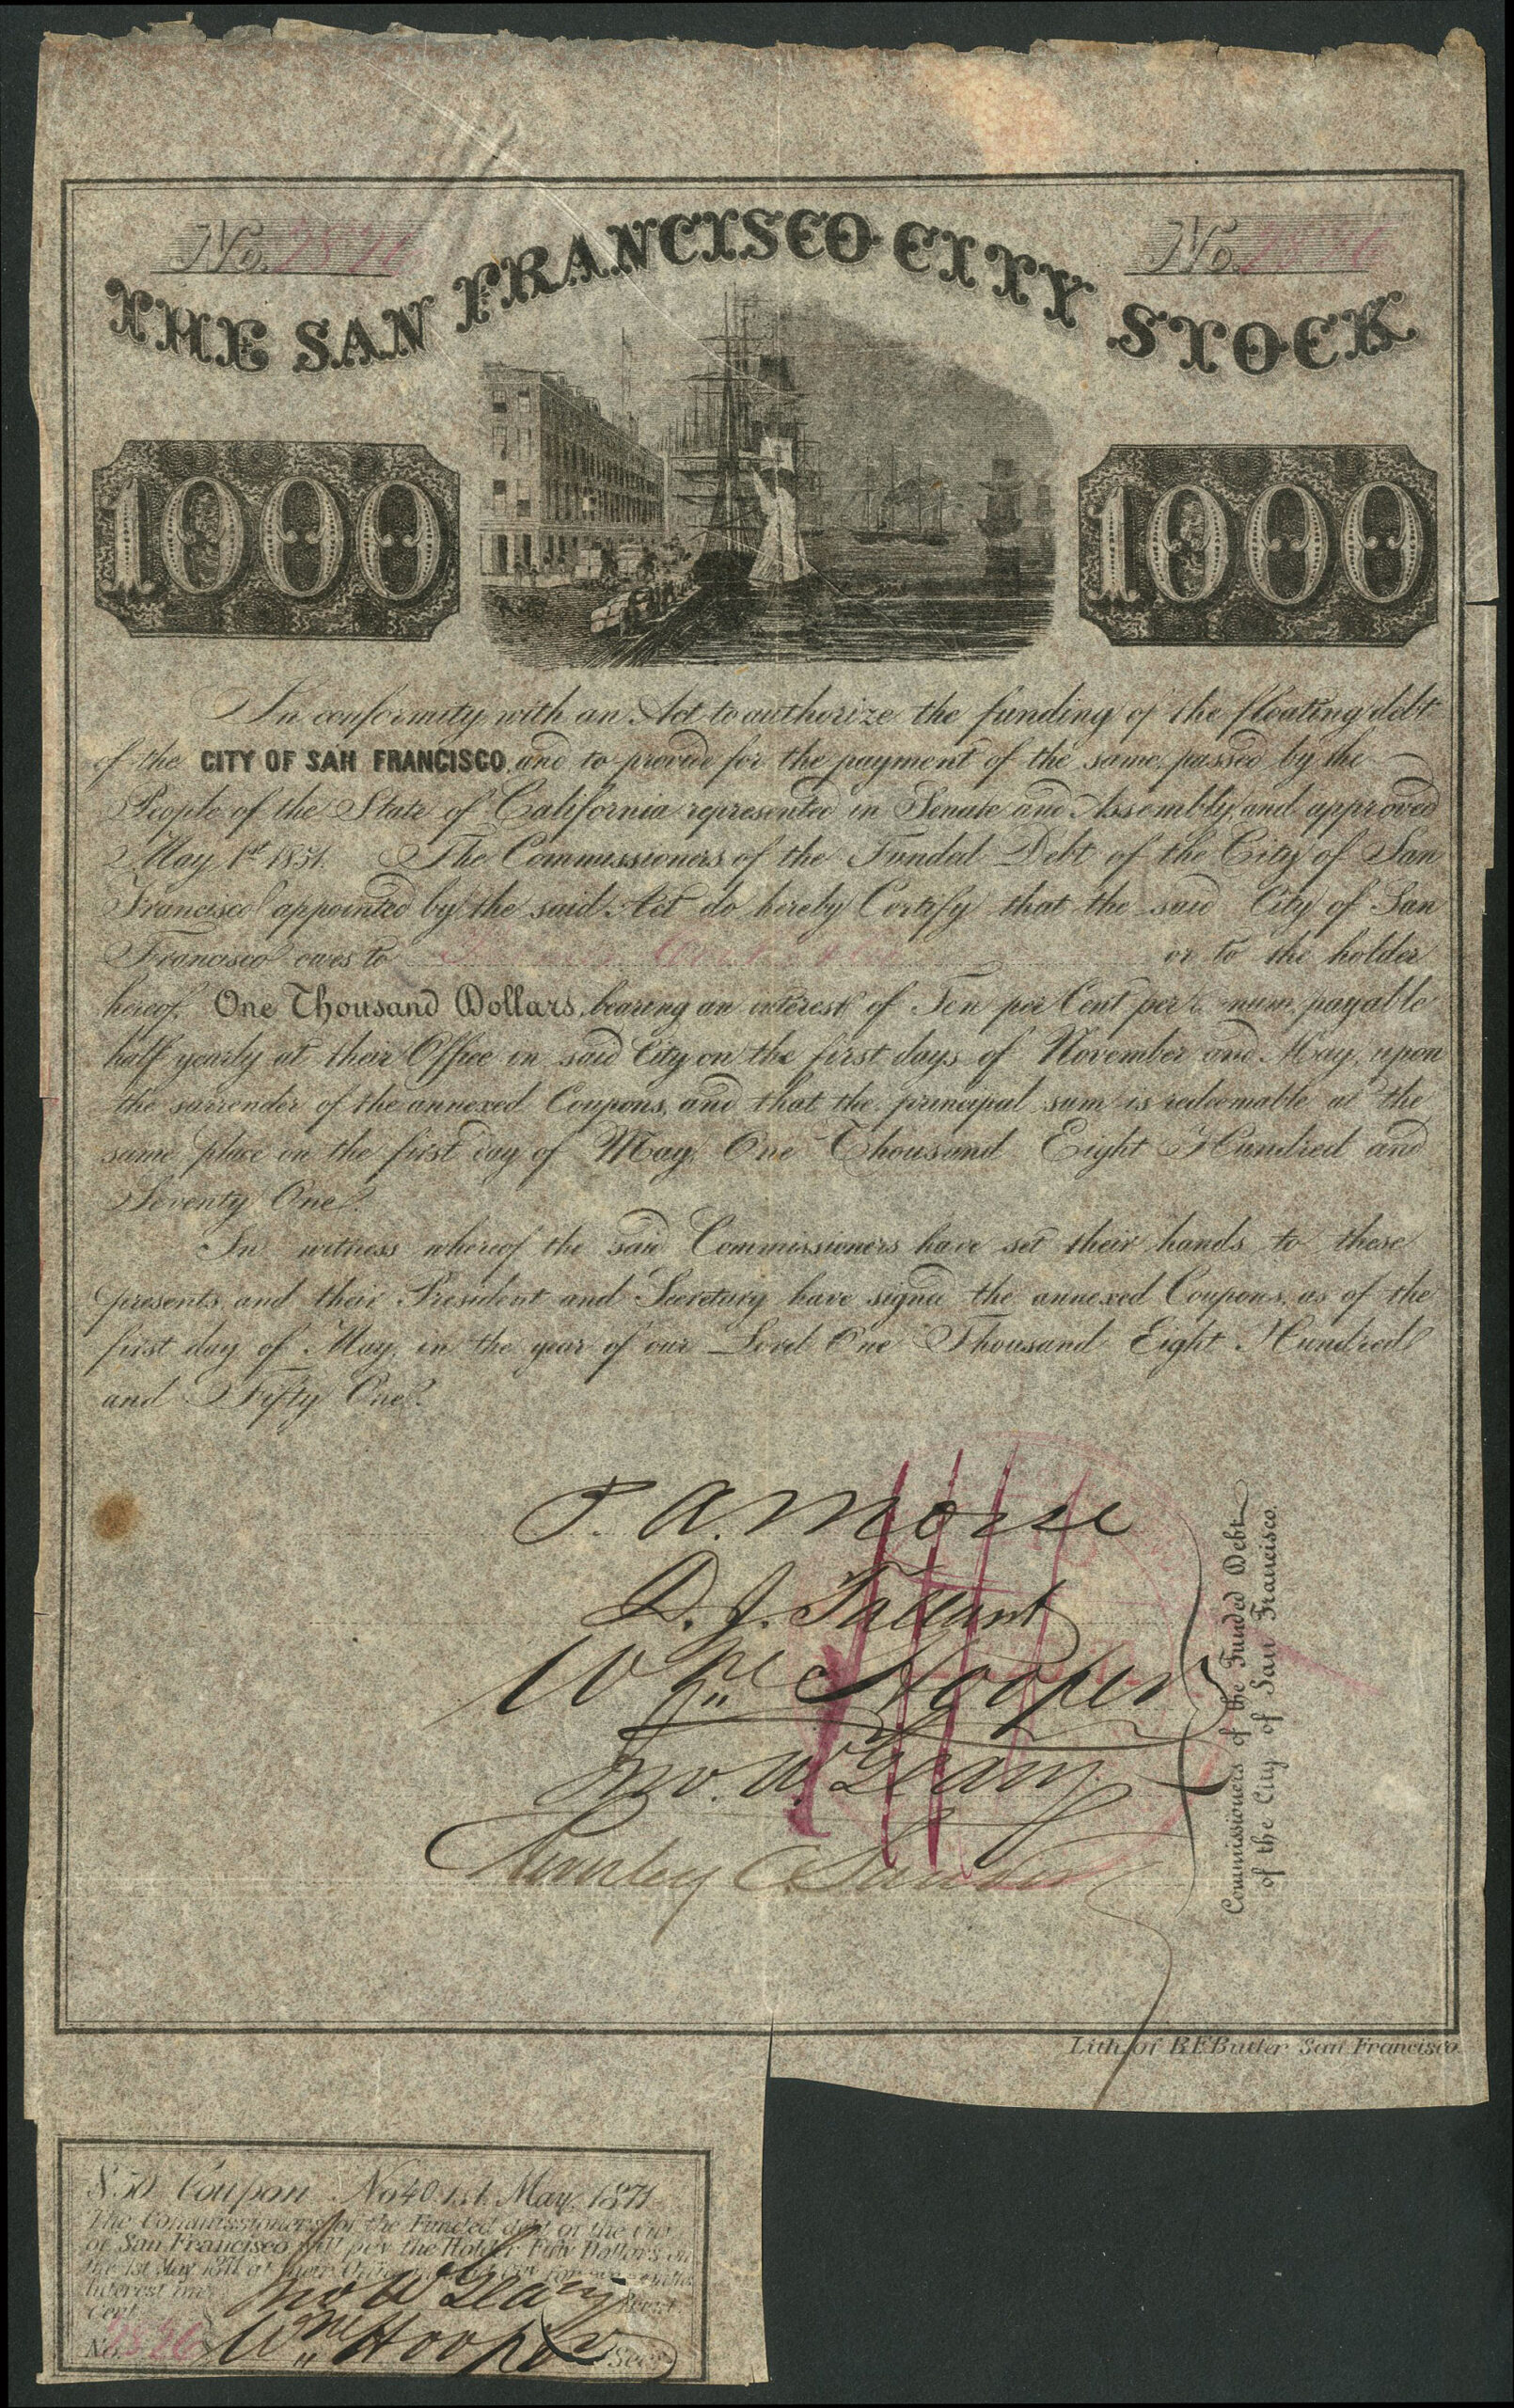 No. No.
THE SAN FRANCISCO CITY STOCK
1000 1000
In conformity with an Act to authorize the funding of the floating debt
of the CITY OF SAN FRANCISCO, and to provide for the payment of the same, passed by the
People of the State of California represented in Senate and Assembly, and approved
May 1st 1851. The Commissioners of the Funded Debt of the City of San
Francisco appointed by the said Act do hereby Certify that the said City of San
Francisco owes to or to the holder
hereof, One Thousand Dollars, bearing an interest of Ten per Cent per num, payable
half yearly at their Office in said City on the first days of November and May, upon
the surrender of the annexed Coupons, and that the principal sum is redeemable at the
same place on the first day of May, One Thousand Eight Hundred and
Seventy One.
In witness whereof the said Commissioners have set their hands to these
presents, and their President and Secretary have signed the annexed Coupons, as of the
first day of May, in the year of our Lord One Thousand Eight Hundred
and Fifty One.
P. A. Morse
D. J. Tallant
Wm Hooper
Jno. W. Geary
Commissioners of the Funded Debt
of the City of San Francisco.
Lith. of B.F Butler San Francisco.
$50 Coupon No 40 1st May 1871
The Commissioners of the Funded debt of the City
of San Francisco will pay the Holder Fifty Dollars on
the 1st May 1871 at their Office
Interest
Cent
Jno W Geary Presdt.
No. Wm Hooper Secy